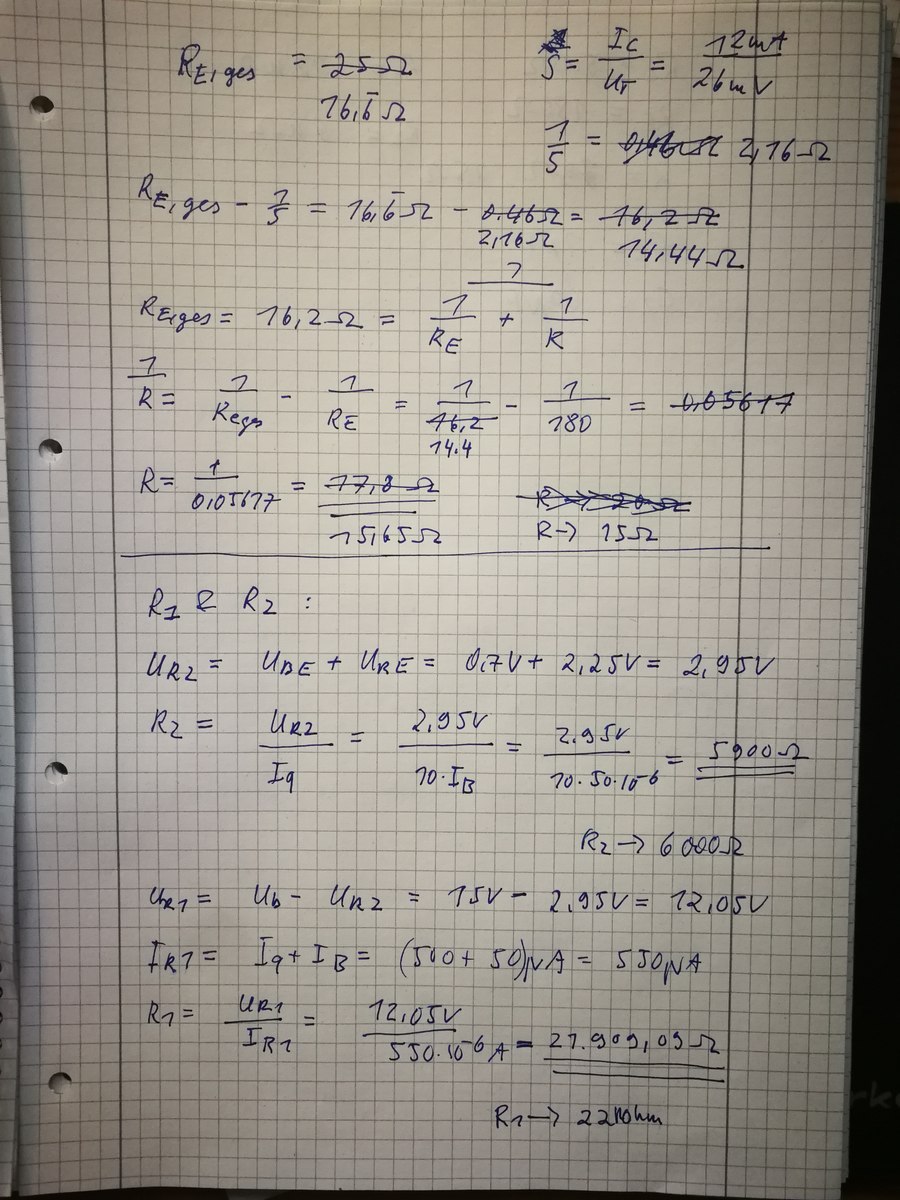 R_E,ges = ~~25Ω~~ S = I_C / U_T = 12mA / 26mV
16,6̅Ω
1/S = ~~0,46Ω~~ 2,16Ω
R_E,ges - 1/S = 16,6̅Ω - ~~0.46Ω~~ = ~~16,2Ω~~
2,16Ω 14,44Ω
R_E,ges = 16,2Ω = 1 / (1/R_E + 1/R)
1/R = 1/R_Eges - 1/R_E = 1/~~16,2~~ - 1/180 = ~~0,05617~~
14.4
R = 1/0,05617 = ~~17,8Ω~~
15,65Ω R → 15Ω
R_1 & R_2 :
U_R2 = U_BE + U_RE = 0,7V + 2,25V = 2,95V
R_2 = U_R2 / I_q = 2,95V / 10·I_B = 2.95V / 10·50·10^-6 = 5900Ω
R_2 → 6000Ω
U_R1 = U_b - U_R2 = 15V - 2,95V = 12,05V
I_R1 = I_q + I_B = (500 + 50)µA = 550µA
R_1 = U_R1 / I_R1 = 12,05V / 550·10^-6 A = 21.909,09Ω
R_1 → 22kOhm